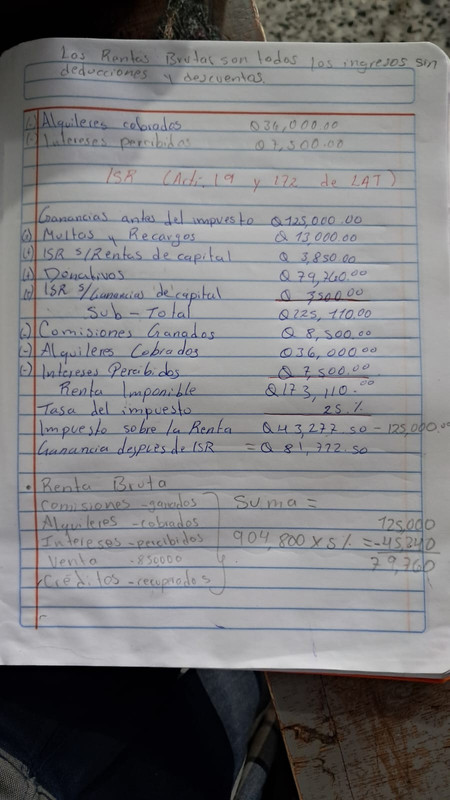 Las Rentas Brutas son todos los ingresos sin
deducciones y descuentos.
(-) Alquileres cobrados Q 36,000.00
(-) Intereses percibidos Q 7,500.00
ISR (Arti. 19 y 172 de LAT)
Ganancias antes del impuesto Q 125,000.00
(+) Multas y Recargos Q 13,000.00
(+) ISR s/Rentas de capital Q 3,850.00
(+) Donativos Q 79,760.00
(+) ISR s/Ganancias de capital Q 3,500.00
Sub-Total Q 225,110.00
(-) Comisiones Ganadas Q 8,500.00
(-) Alquileres Cobrados Q 36,000.00
(-) Intereses Percibidos Q 7,500.00
Renta Imponible Q 173,110.00
Tasa del impuesto 25 %
Impuesto sobre la Renta Q 43,277.50 - 125,000.00
Ganancia después de ISR = Q 81,722.50
• Renta Bruta
Comisiones - ganados Suma =
Alquileres - cobrados 125,000
Intereses - percibidos 904,800 x 5 % = - 45,240
Venta - 850000 79,760
Créditos - recuperados